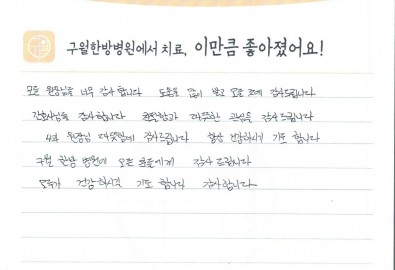 구월한방병원에서 치료, 이만큼 좋아졌어요!
모든 원장님들 너무 감사합니다 도움을 많이 받고 감사드립니다
간호사님들 감사합니다 따뜻한 감사드립니다
원장님 따뜻함에 감사드립니다 항상 건강하시게 기도 합니다
구월 한방 병원에 모든 분들에게 감사 드립니다
모두가 건강하시길 기도 합니다 감사합니다